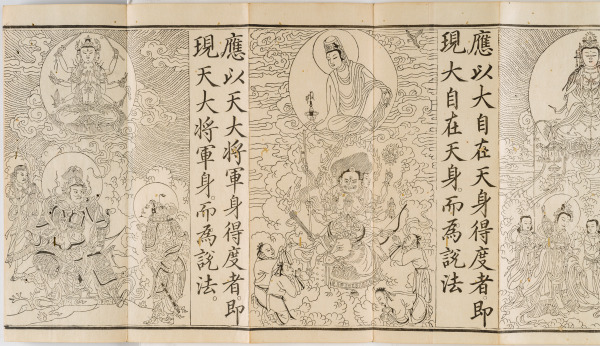 應以大自在天身得度者。即
現大自在天身。而為說法
應以天大將軍身得度者。即
現天大將軍身。而為說法。